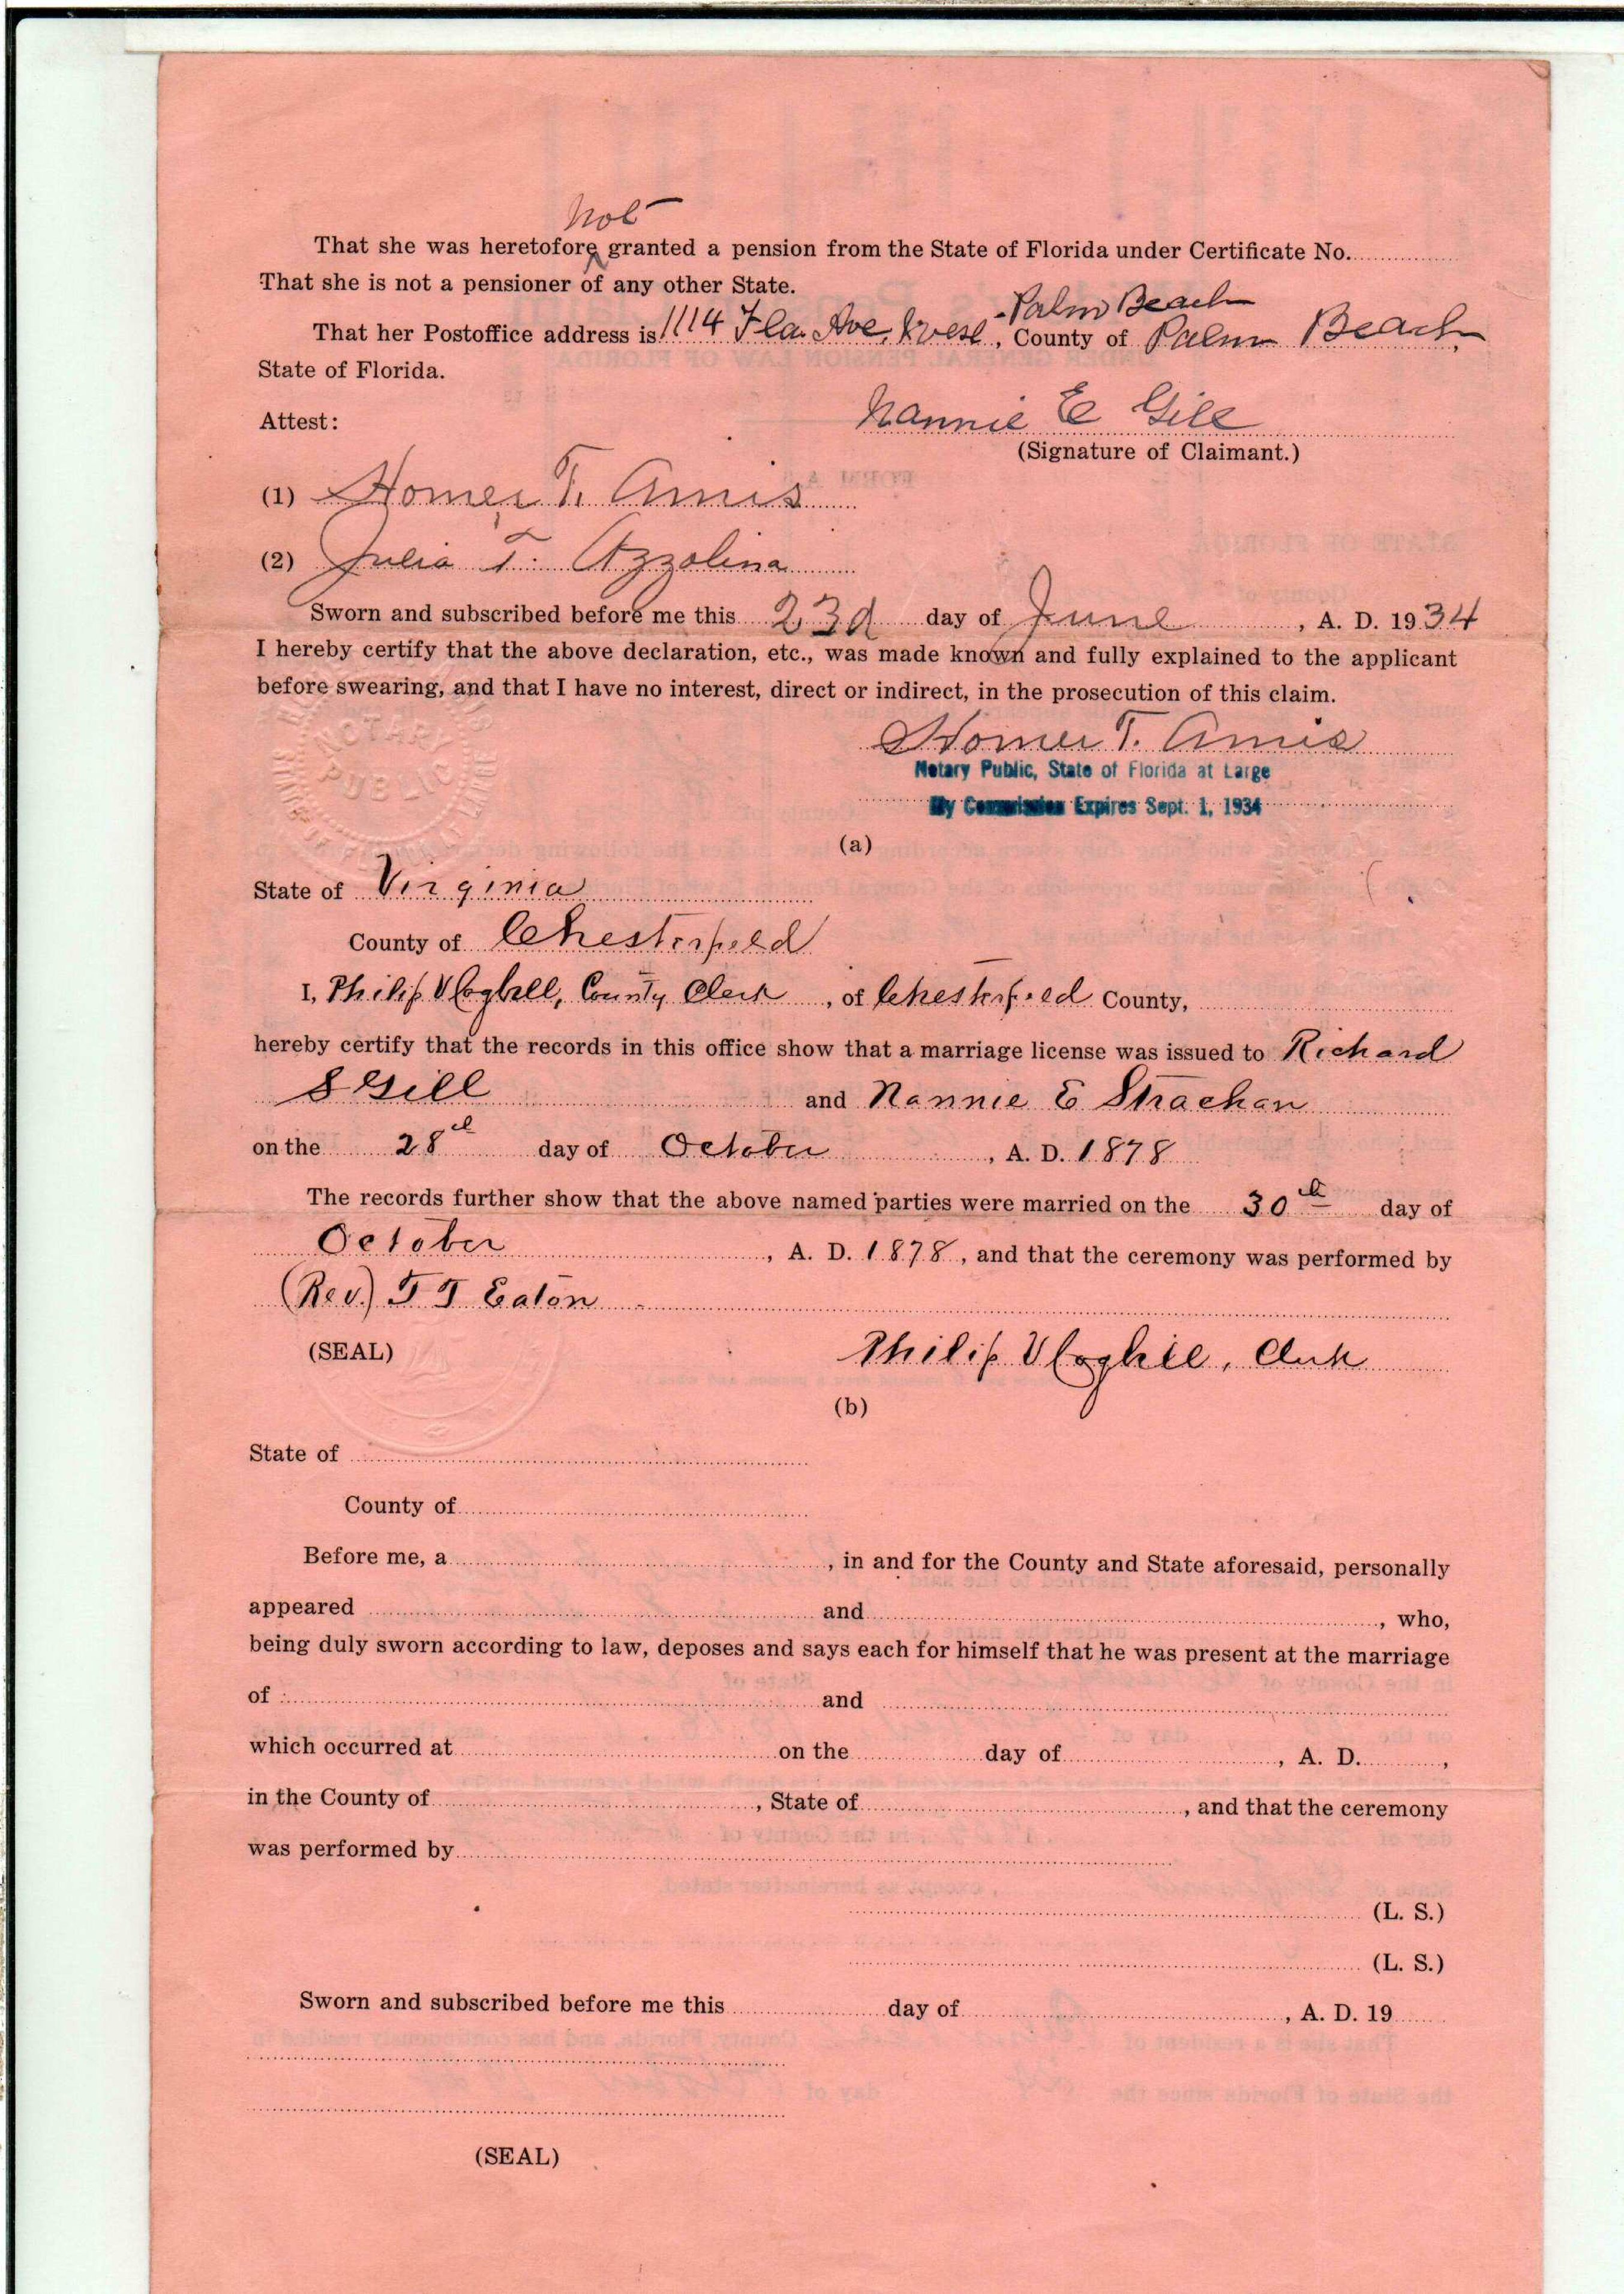 not
That she was heretofore granted a pension from the State of Florida under Certificate No.
That she is not a pensioner of any other State.
Palm Beach
That her Postoffice address is 1114 Fla. Ave. West, County of Palm Beach,
State of Florida.
Attest:
Nannie E Gill
(Signature of Claimant.)
(1) Homer T. Amis
(2) Julia T. Azzolina
Sworn and subscribed before me this 23d day of June, A. D. 1934
I hereby certify that the above declaration, etc., was made known and fully explained to the applicant
before swearing, and that I have no interest, direct or indirect, in the prosecution of this claim.
NOTARY PUBLIC
Homer T. Amis
Notary Public, State of Florida at Large
My Commission Expires Sept. 1, 1934
(a)
State of Virginia
County of Chesterfield
I, Philip V Coghill, County Clerk, of Chesterfield County,
hereby certify that the records in this office show that a marriage license was issued to Richard
S Gill and Nannie E Strachan
on the 28th day of October, A. D. 1878
The records further show that the above named parties were married on the 30th day of
October, A. D. 1878, and that the ceremony was performed by
(Rev.) T T Eaton
(SEAL)
Philip V Coghill, Clerk
(b)
State of
County of
Before me, a , in and for the County and State aforesaid, personally
appeared and , who,
being duly sworn according to law, deposes and says each for himself that he was present at the marriage
of and
which occurred at on the day of , A. D. ,
in the County of , State of , and that the ceremony
was performed by
(L. S.)
(L. S.)
Sworn and subscribed before me this day of , A. D. 19
(SEAL)